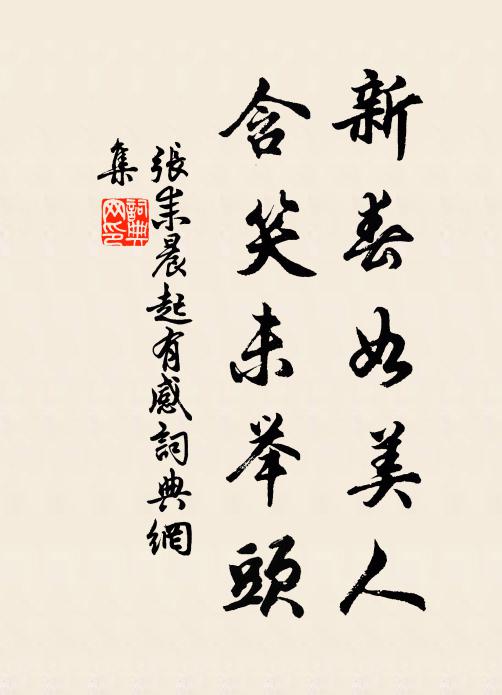 新春如美人
含笑未举頭
張耒晨起有感詞典網
集
詞典
网印